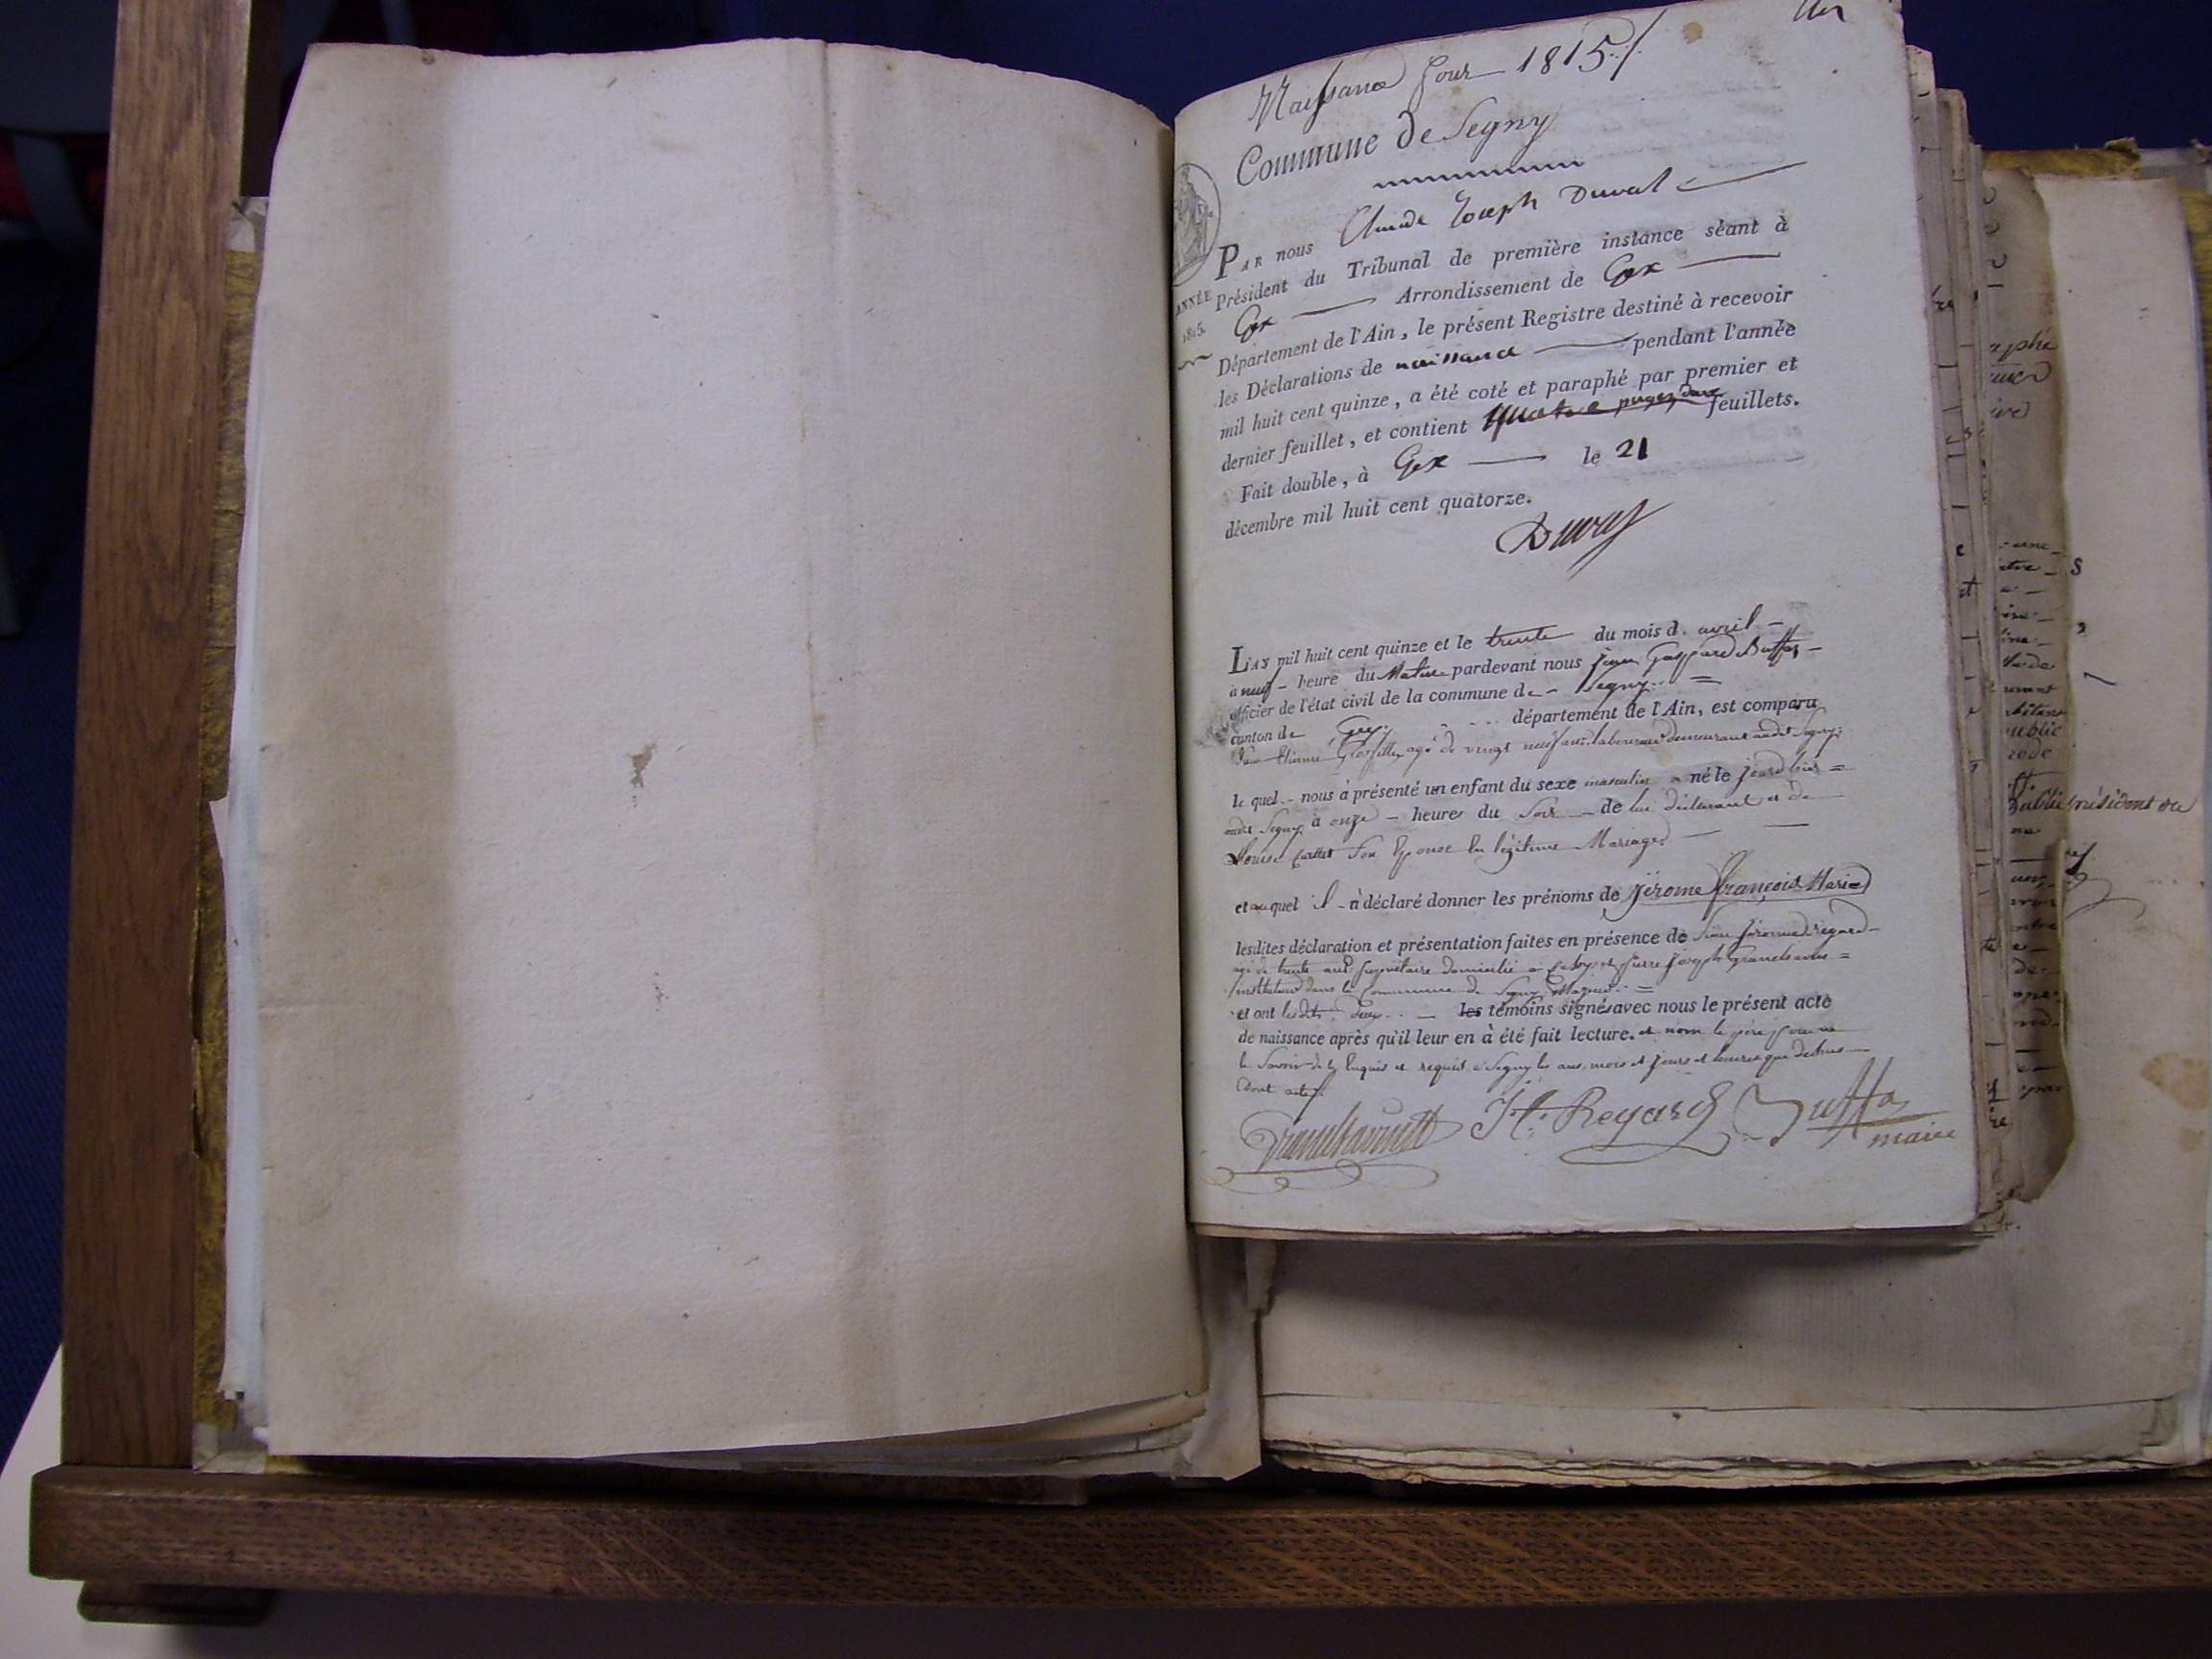 un
Naissance pour 1815 ./.
Commune de Segny
PAR nous Claude Joseph Duval
Président du Tribunal de première instance séant à
Gex Arrondissement de Gex
Département de l'Ain, le présent Registre destiné à recevoir
les Déclarations de naissance pendant l'année
mil huit cent quinze, a été coté et paraphé par premier et
dernier feuillet, et contient quatre pages, deux feuillets.
Fait double, à Gex le 21
décembre mil huit cent quatorze.
Duval
ANNÉE
1815.
L'AN mil huit cent quinze et le trente du mois d. avril
à neuf heure du Matin pardevant nous jean Gaspard Buffaz
officier de l'état civil de la commune de Segny
canton de Gex département de l'Ain, est comparu
Etienne agé de vingt neuf ans laboureur demeurant audit Segny
le quel nous à présenté un enfant du sexe masculin né le jourd'hier
audit Segny à onze heures du Soir de lui déclarant et de
Louise Son Epouse en légitime Mariage
et auquel il à déclaré donner les prénoms de Jérome françois Marie
lesdites déclaration et présentation faites en présence de Jérome Regard
agé de trente ans propriétaire domicilié à et pierre joseph
instituteur dans la Commune de Segny
et ont lesdits Deux les témoins signés avec nous le présent acte
de naissance après qu'il leur en à été fait lecture. et non le père pour ne
le Savoir de Enquis et requis à Segny les ans, mois et jours et heures que dessus
Dont acte
Regard Buffaz
maire